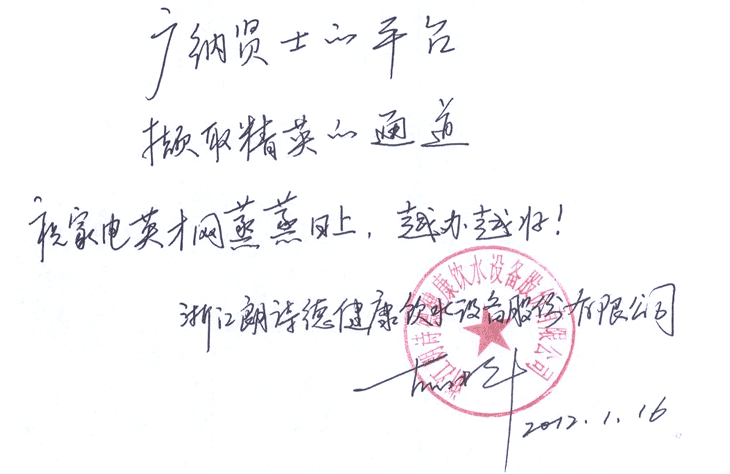 广纳贤士的平台
撷取精英的通道
祝家电英才网蒸蒸日上，越办越好！
浙江朗诗德健康饮水设备股份有限公司
浙江朗诗德健康饮水设备股份有限公司
2012.1.16